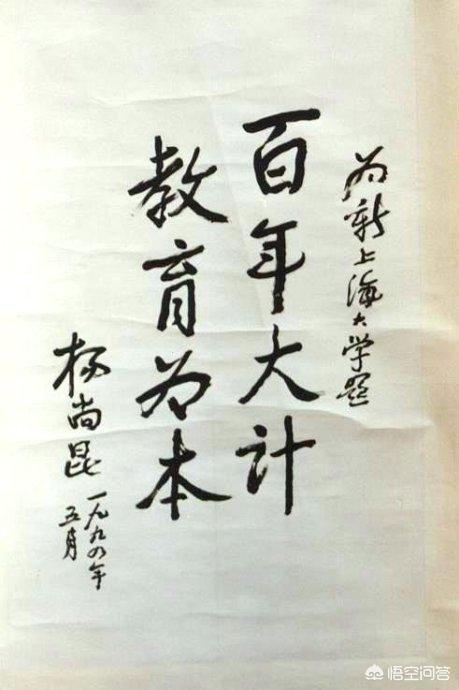 为新上海大学题
百年大计
教育为本
杨尚昆
一九九四年
五月
悟空问答